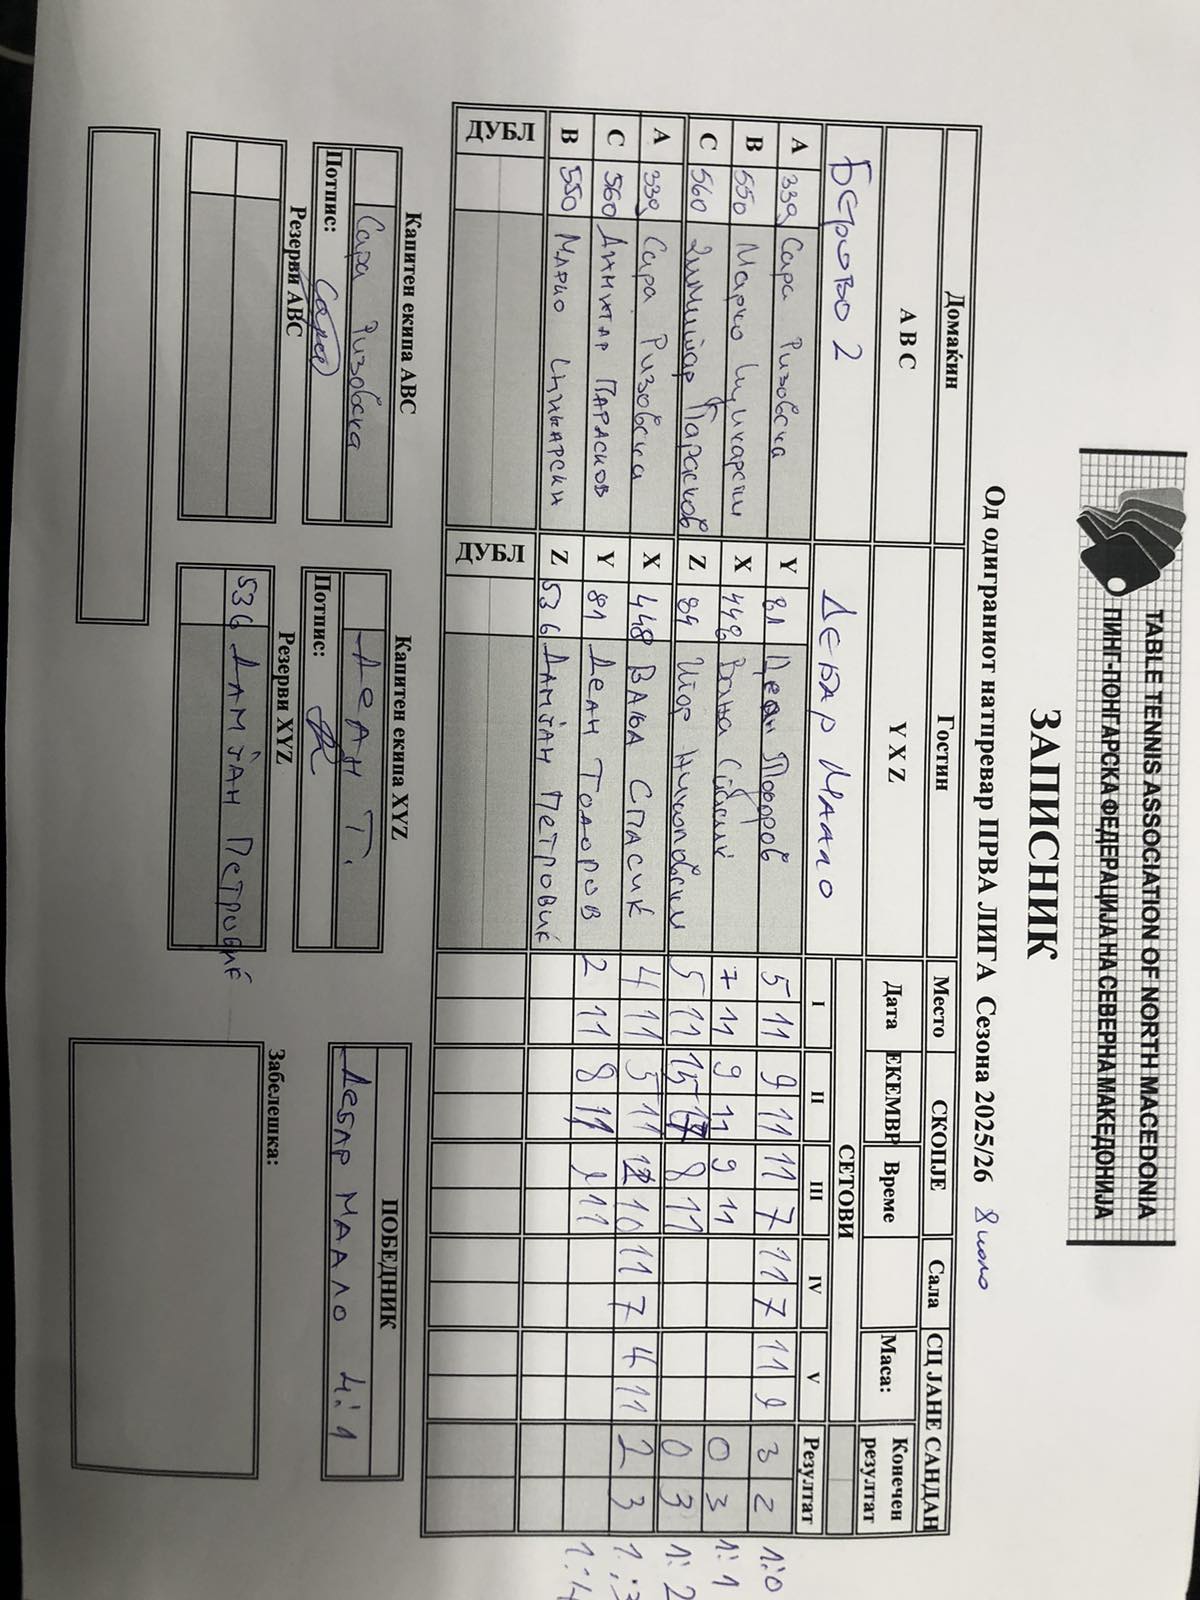 TABLE TENNIS ASSOCIATION OF NORTH MACEDONIA
ПИНГ-ПОНГАРСКА ФЕДЕРАЦИЈА НА СЕВЕРНА МАКЕДОНИЈА
ЗАПИСНИК
Од одиграниот натпревар ПРВА ЛИГА Сезона 2025/26 8 коло
Домаќин Гостин Место СКОПЈЕ Сала СЦ ЈАНЕ САНДАН
A B C Y X Z Дата ЕКЕМВР Време Маса: Конечен резултат
БЕРОВО 2 ДЕБАР МААЛО СЕТОВИ
I II III IV V Резултат
A 339 Сара Ризовска Y 81 Деан Тодоров 5 11 9 11 11 7 11 7 11 9 3 2 1:0
B 550 Марио Y X 448 Вања Спасиќ 7 11 9 11 9 11 0 3 1:1
C 560 Димитар Парасков Z 84 Игор Николовски 5 11 15 17 8 11 0 3 1:2
A 339 Сара Ризовска X 448 ВАЊА СПАСИЌ 4 11 5 11 12 10 11 7 4 11 2 3 1:3
C 560 ДИМИТАР ПАРАСКОВ Y 81 ДЕАН ТОДОРОВ 2 11 8 11 9 11 1:4
B 550 МАРИО Z 536 ДАМЈАН ПЕТРОВИЌ
ДУБЛ ДУБЛ
Капитен екипа ABC Капитен екипа XYZ ПОБЕДНИК
Сара Ризовска ДЕАН Т. ДЕБАР МААЛО 4:1
Потпис: Сара Потпис:
Резерви ABC Резерви XYZ Забелешка:
536 ДАМЈАН ПЕТРОВИЌ